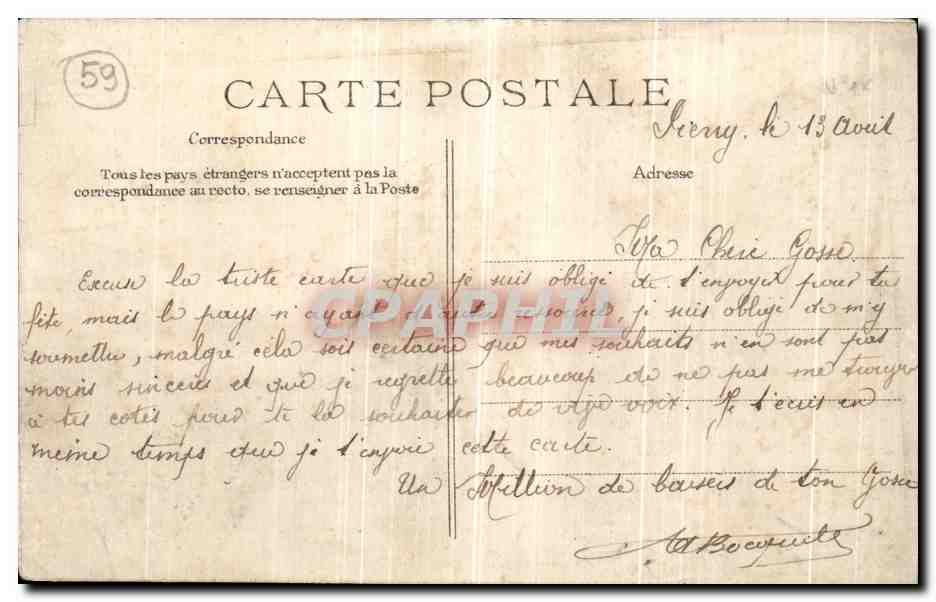 59
CARTE POSTALE
le 13 Avril
Correspondance
Tous les pays étrangers n'acceptent pas la
correspondance au recto, se renseigner à la Poste
Adresse
Ma Cherie Gosse
Excuse la triste carte que je suis obligé de t'envoyer pour ta
fête, mais le pays n'ayant d'autre ressource, je suis obligé de m'y
soumettre, malgré cela sois certaine que mes souhaits n'en sont pas
moins sincères et que je regrette beaucoup de ne pas me trouver
à tes cotés pour te la souhaiter de vive voix. Je t'écris en
même temps que je t'envoie cette carte.
Un Million de baisers de ton Gosse
CPAPHIL